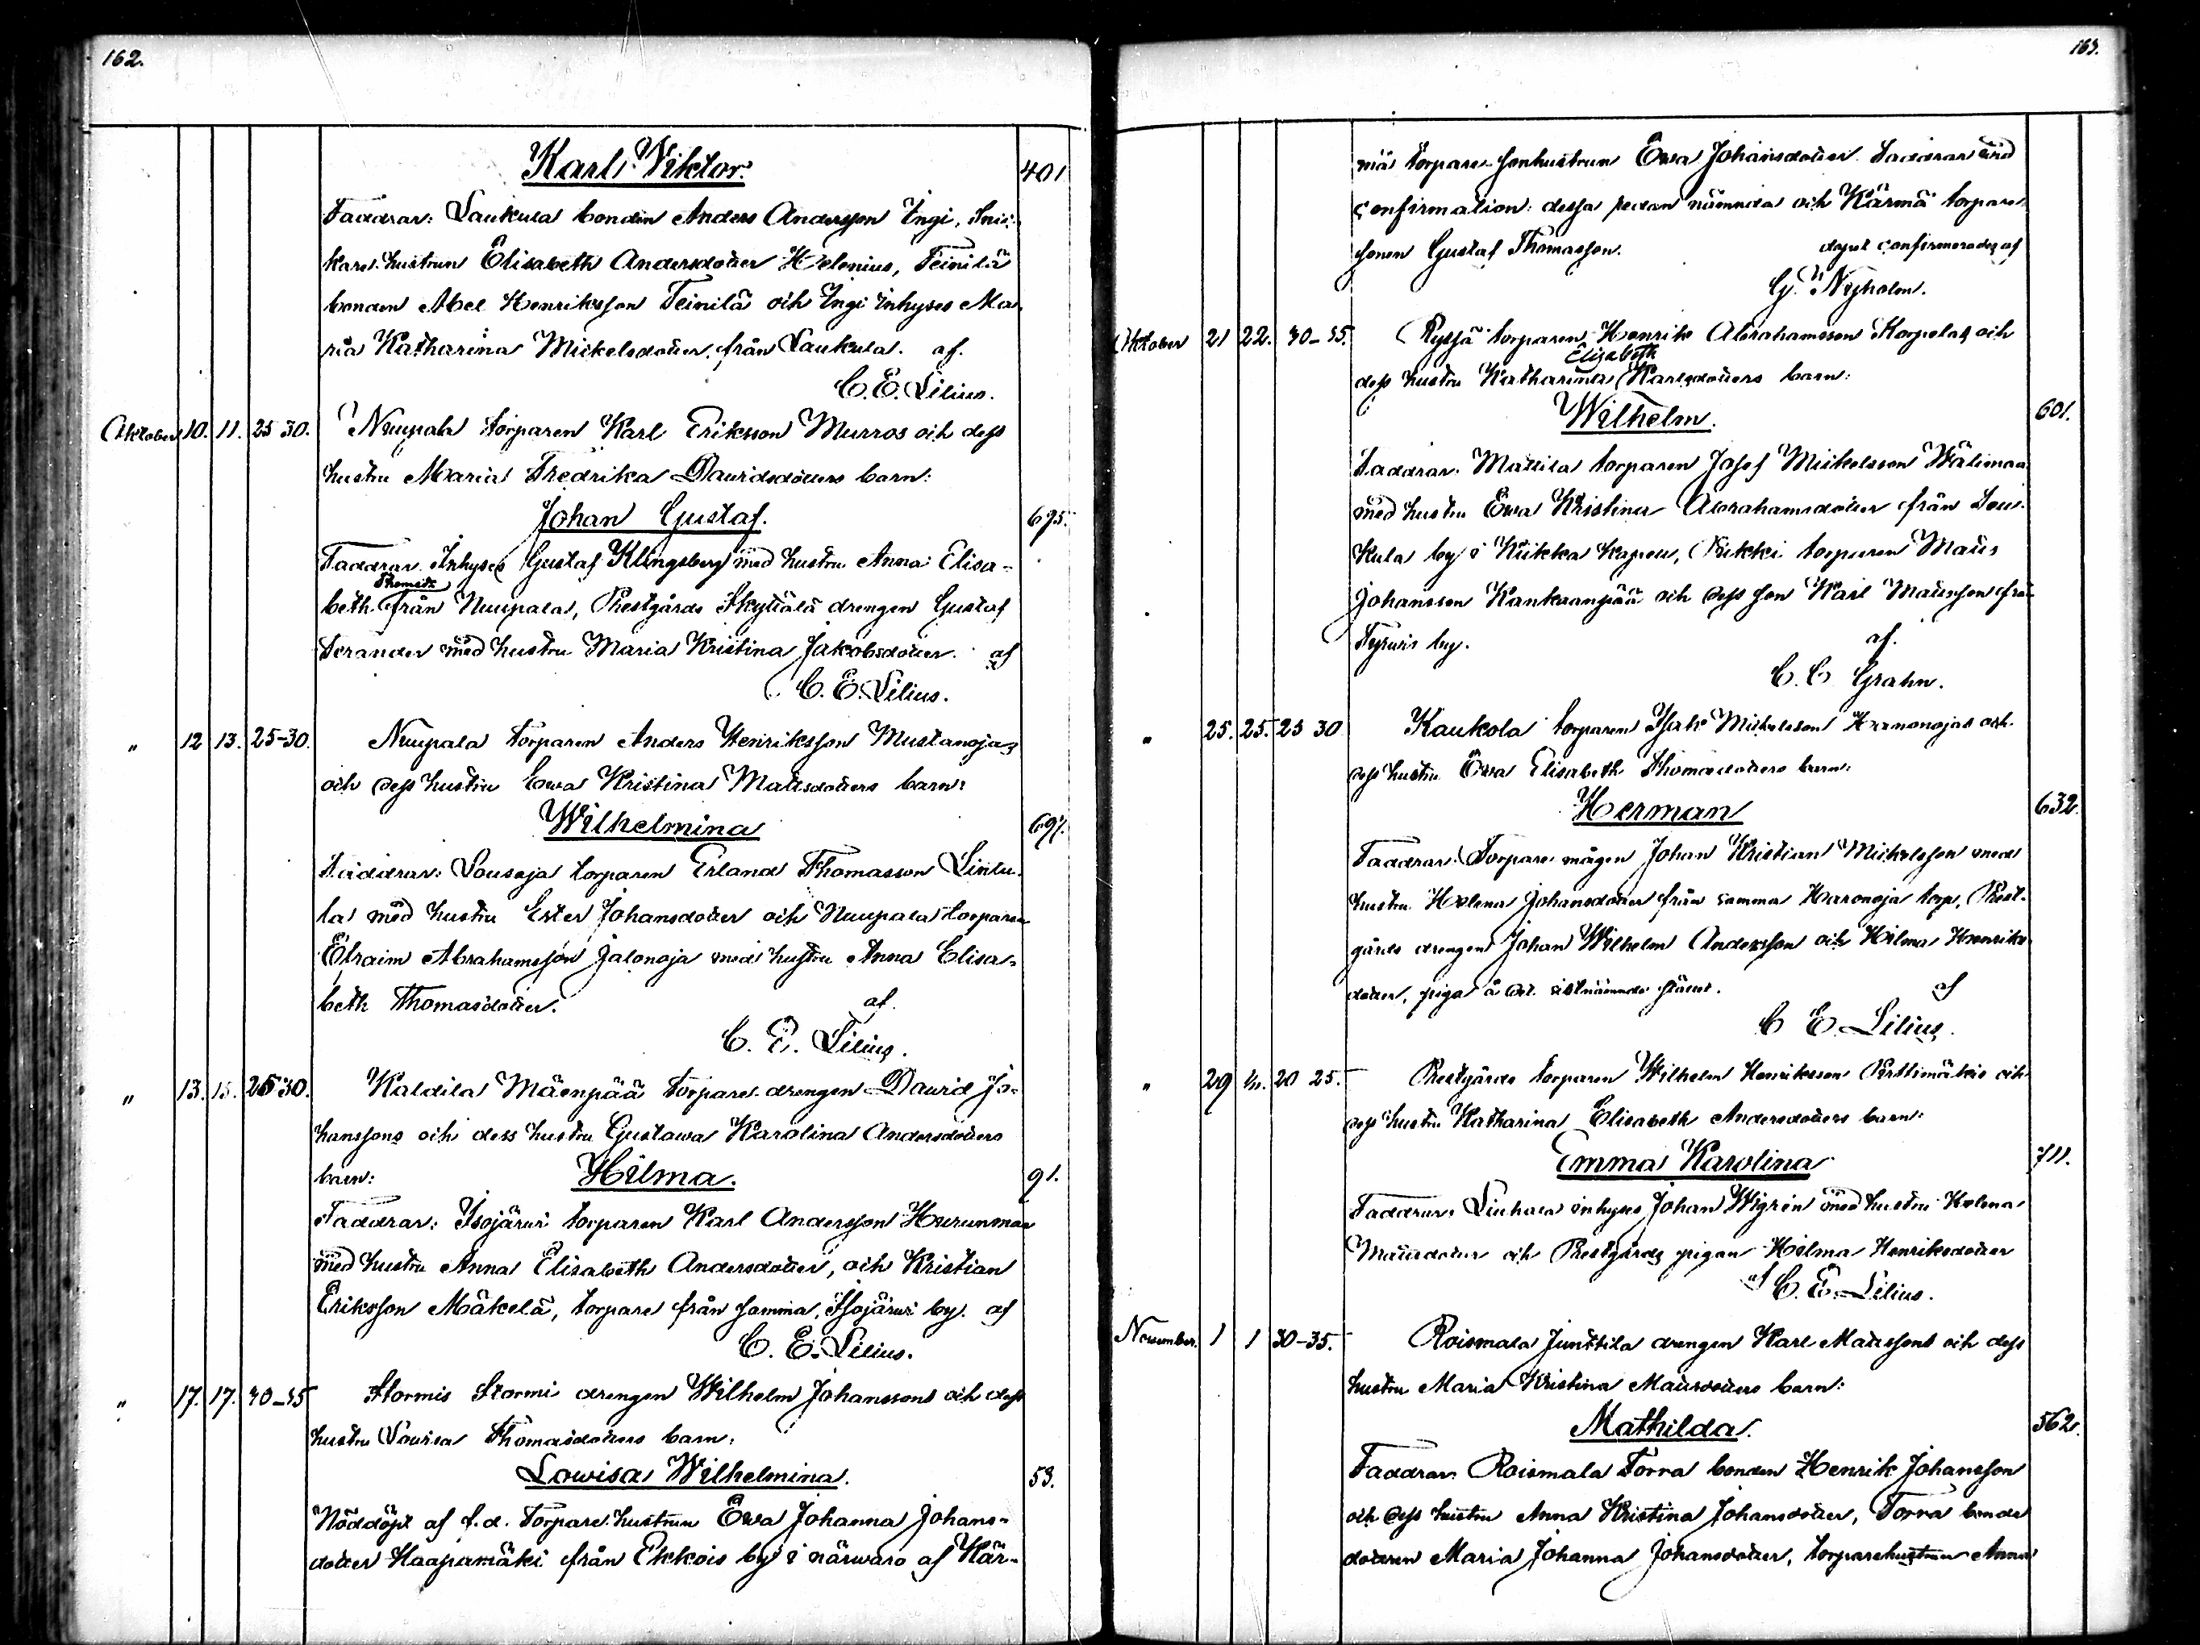 162.
Karl Viktor. 401
Faddrar: Laukula bonden Anders Andersson Yngi, Snic-
kare hustrun Elisabeth Andersdotter Helenius, Teinilä
bonden Abel Henriksson Teinilä och Yngi inhyses Ma-
ria Katharina Mickelsdotter från Laukula. af.
C. E. Lilius.
Oktober 10. 11. 25 30. Nuupala torparen Karl Eriksson Murros och dess
hustru Maria Fredrika Davidsdotters barn:
Johan Gustaf. 695.
Faddrar Inhyses Gustaf Klingsberg med hustru Anna Elisa-
beth från Nuupala, Prestgårds Skyttälä drengen Gustaf
Strander med hustru Maria Kristina Jakobsdotter. af
C. E. Lilius.
" 12 13. 25-30. Nuupala torparen Anders Henriksson Mustanojas
och dess hustru Ewa Kristina Matsdotters barn:
Wilhelmina 697.
Faddrar: Lousaja torparen Erland Thomasson Lintu-
la med hustru Ester Johansdotter och Nuupala torparen
Efraim Abrahamsson Jalonoja med hustru Anna Elisa-
beth Thomasdotter. af
C. E. Lilius.
" 13. 15. 25 30. Kaldila Mäenpää torpare drengen David Jo-
hanssons och dess hustru Gustava Karolina Andersdotters
barn: Hilma. 91.
Faddrar: Isojärvi torparen Karl Andersson Hurunmaa
med hustru Anna Elisabeth Andersdotter, och Kristian
Eriksson Mäkelä, torpare från samma Isojärvi by. af
C. E. Lilius.
" 17. 17. 30-35 Stormis Stormi drengen Wilhelm Johanssons och dess
hustru Lovisa Thomasdotters barn:
Lowisa Wilhelmina. 53.
Nöddöpt af f.d. Torpare hustrun Ewa Johanna Johans-
dotter Haapamäki från Ekkois by i närwaro af Kär-
163.
mä torpare sonhustrun Ewa Johansdotter. Faddrar wid
confirmation: dessa sedan nämnda och Kärmä torpare
sonen Gustaf Thomasson. dopet confirmerades af
G. Nyholm.
Oktober 21 22. 30-35. Ryssä torparen Henrik Abrahamsson Korpelas och
Elisabeth
dess hustru Katharina Karlsdotters barn:
Wilhelm. 601.
Faddrar. Mattila torparen Josef Mickelsson Wälimaa
med hustru Ewa Kristina Abrahamsdotter från
kula by i Kiikka Kapell, torparen Matts
Johansson Kankaanpää och dess son Karl Mattsson från
Tyrvis by. af.
C. C Grahn.
" 25. 25. 25 30 Kaukola torparen Isak Mickelsson Haronojas och
dess hustru Ewa Elisabeth Thomasdotters barn:
Herman 632.
Faddrar: Torpare mågen Johan Kristian Mickelsson med
hustru Helena Johansdotter från samma Haronoja torp, Prest-
gårds drengen Johan Wilhelm Andersson och Hilma Henriks-
dotter, piga å det sistnämnda stället. af
C E. Lilius.
" 29 20 25. Prestgårds torparen Wilhelm Henriksson Perttimäkis och
dess hustru Katharina Elisabeth Andersdotters barn:
Emma Karolina 711.
Faddrar: Liuhala inhyses Johan Wigren med hustru Helena
Mattsdotter och Prestgårds pigan Hilma Henriksdotter
af C. E. Lilius.
November. 1 1 30-35. Roismala Junttila drengen Karl Mattssons och dess
hustru Maria Kristina Mattsdotters barn:
Mathilda. 562.
Faddrar. Roismala Torra bonden Henrik Johansson
och dess hustru Anna Kristina Johansdotter, Torra bonde
dottren Maria Johanna Johansdotter, torparehustrun Anna